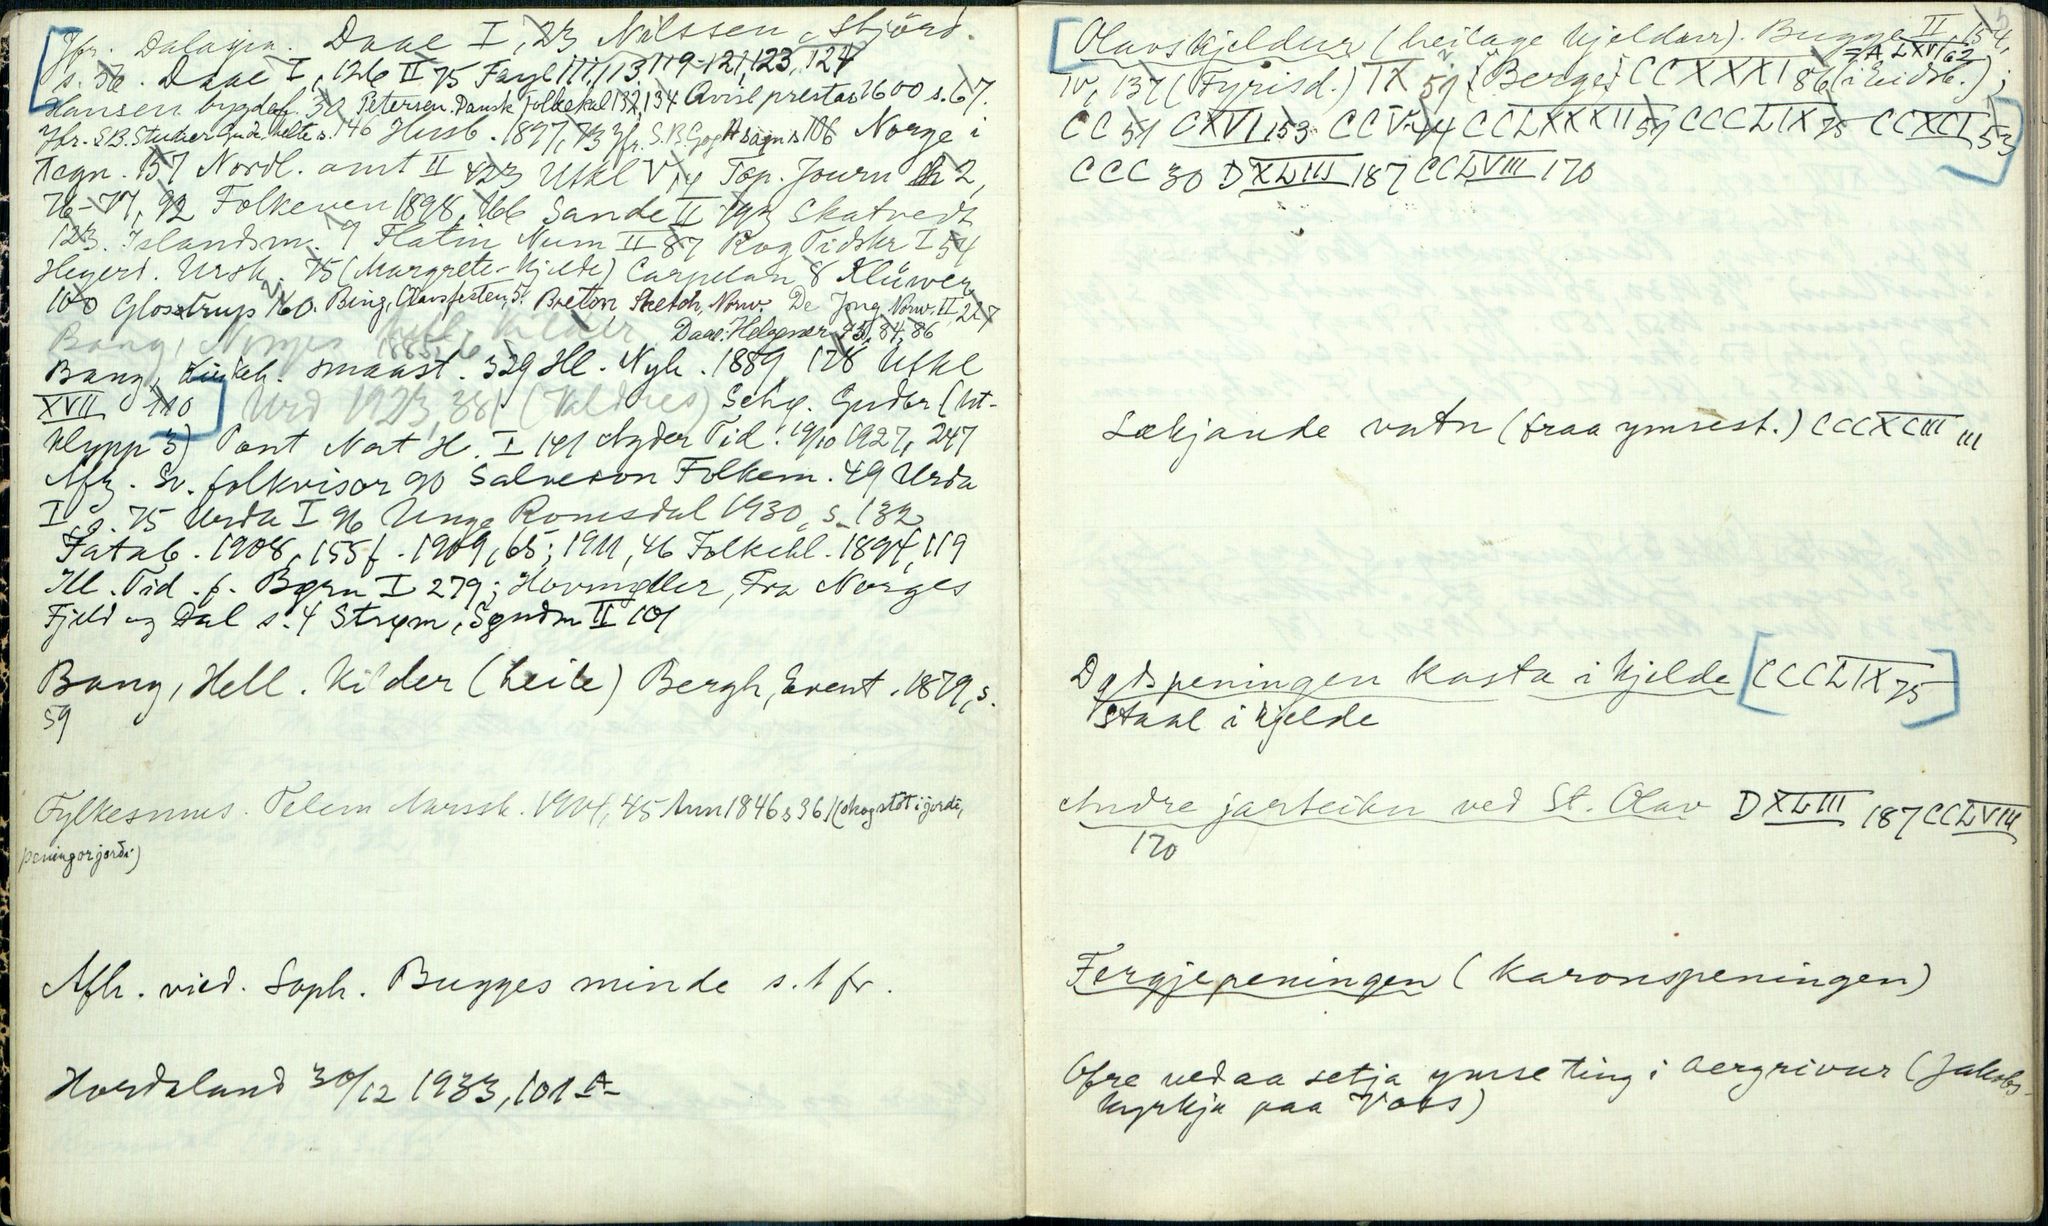 Jfr. Dalagjea. Daae I, 23 Nilssen, Stjörd.
s. 36. Daae I, 126 II 75 Faye 111, 113, 119-121, 123, 124
Hansen bygdef. 32 Petersen. Dansk folkekal 132, 134 Avisl prestas 1600 s. 67.
Jfr. S.B. Studier Gude helte s. 146 Husb. 1897, 73 Jfr. S.B. sagn s 106 Norge i
Tegn. 157 Nordl. amt II 423 Utkl V 14 Top. Journ h 2,
76-77, 92 Folkeven 1898, 166 Sande II 193 Skatvedt
123. Islandsm. 9 Flatin Num II 87 Rog Tidskr I 54
Hegerd. Ursk. 75 (Margrete-Kjelde) Carpelan 8 Klüwer
100 Glostrup 160. Bing, Olavsfesten, 5. Breton, Sketch, Norw. De Jong Norw. II, 227
Daae: Helgener 75, 84, 86
Bang, Norges hell. kilder 1885, 6
Bang, Kirkeh. smaast. 329 Hl. Nyk. 1889, 178 Utkl
XVII 110 Urd 1923, 381 (Valdres) Schø. Gudbr (Ut-
klypp 3) Pont Nat H. I 141 Agder Tid. 19/10 1927, 247
Afz. Sv. folkvisor 90 Salveson Folkem. 49 Urda
I s. 75 Urda I 96 Unge Romsdal 1930, s. 132
Fatab. 1908, 155 f. 1909, 65; 1911, 46 Folkebl. 1894, 119
Ill. Tid. f. Børn I 279; Hovmøller, Fra Norges
Fjeld og Dal s. 4 Strøm, Søndm II 101
Bang, Hell. Kilder (heile) Bergh, Event. 1879, s.
59
Fylkesmus. Telem Aarssk. 1904, 45 Ann 1846 s 361 (skog støt i jordi,
peningor jordi)
Afh. vied. Soph. Bugges minde s. 1 fr.
Hordaland 30/12 1933, 101 A
Olavskjeldur (heilage kjeldur). Bugge II, 154,
= A LXVI 62
IV, 137 (Fyrisd.) IX 59 (Berge) CCXXXI 86 (i Eidsb.);
CC 51 CXVI 153 CCV 44 CCLXXXII 59 CCCLIX 75 CCXCI 53
CCC 30 DXLIII 187 CCLVIII 170
Lækjande vatn (fraa ymsest.) CCCXCIII 111
Dødspeningen kasta i kjelde CCCLIX 75
Staal i kjelde
Andre jarteikn ved St. Olav DXLIII 187 CCLVIII
170
Fergjepeningen (karonspeningen)
Ofre ved aa setja ymse ting i bergrivur (Jakobs-
kyrkja paa Voss)